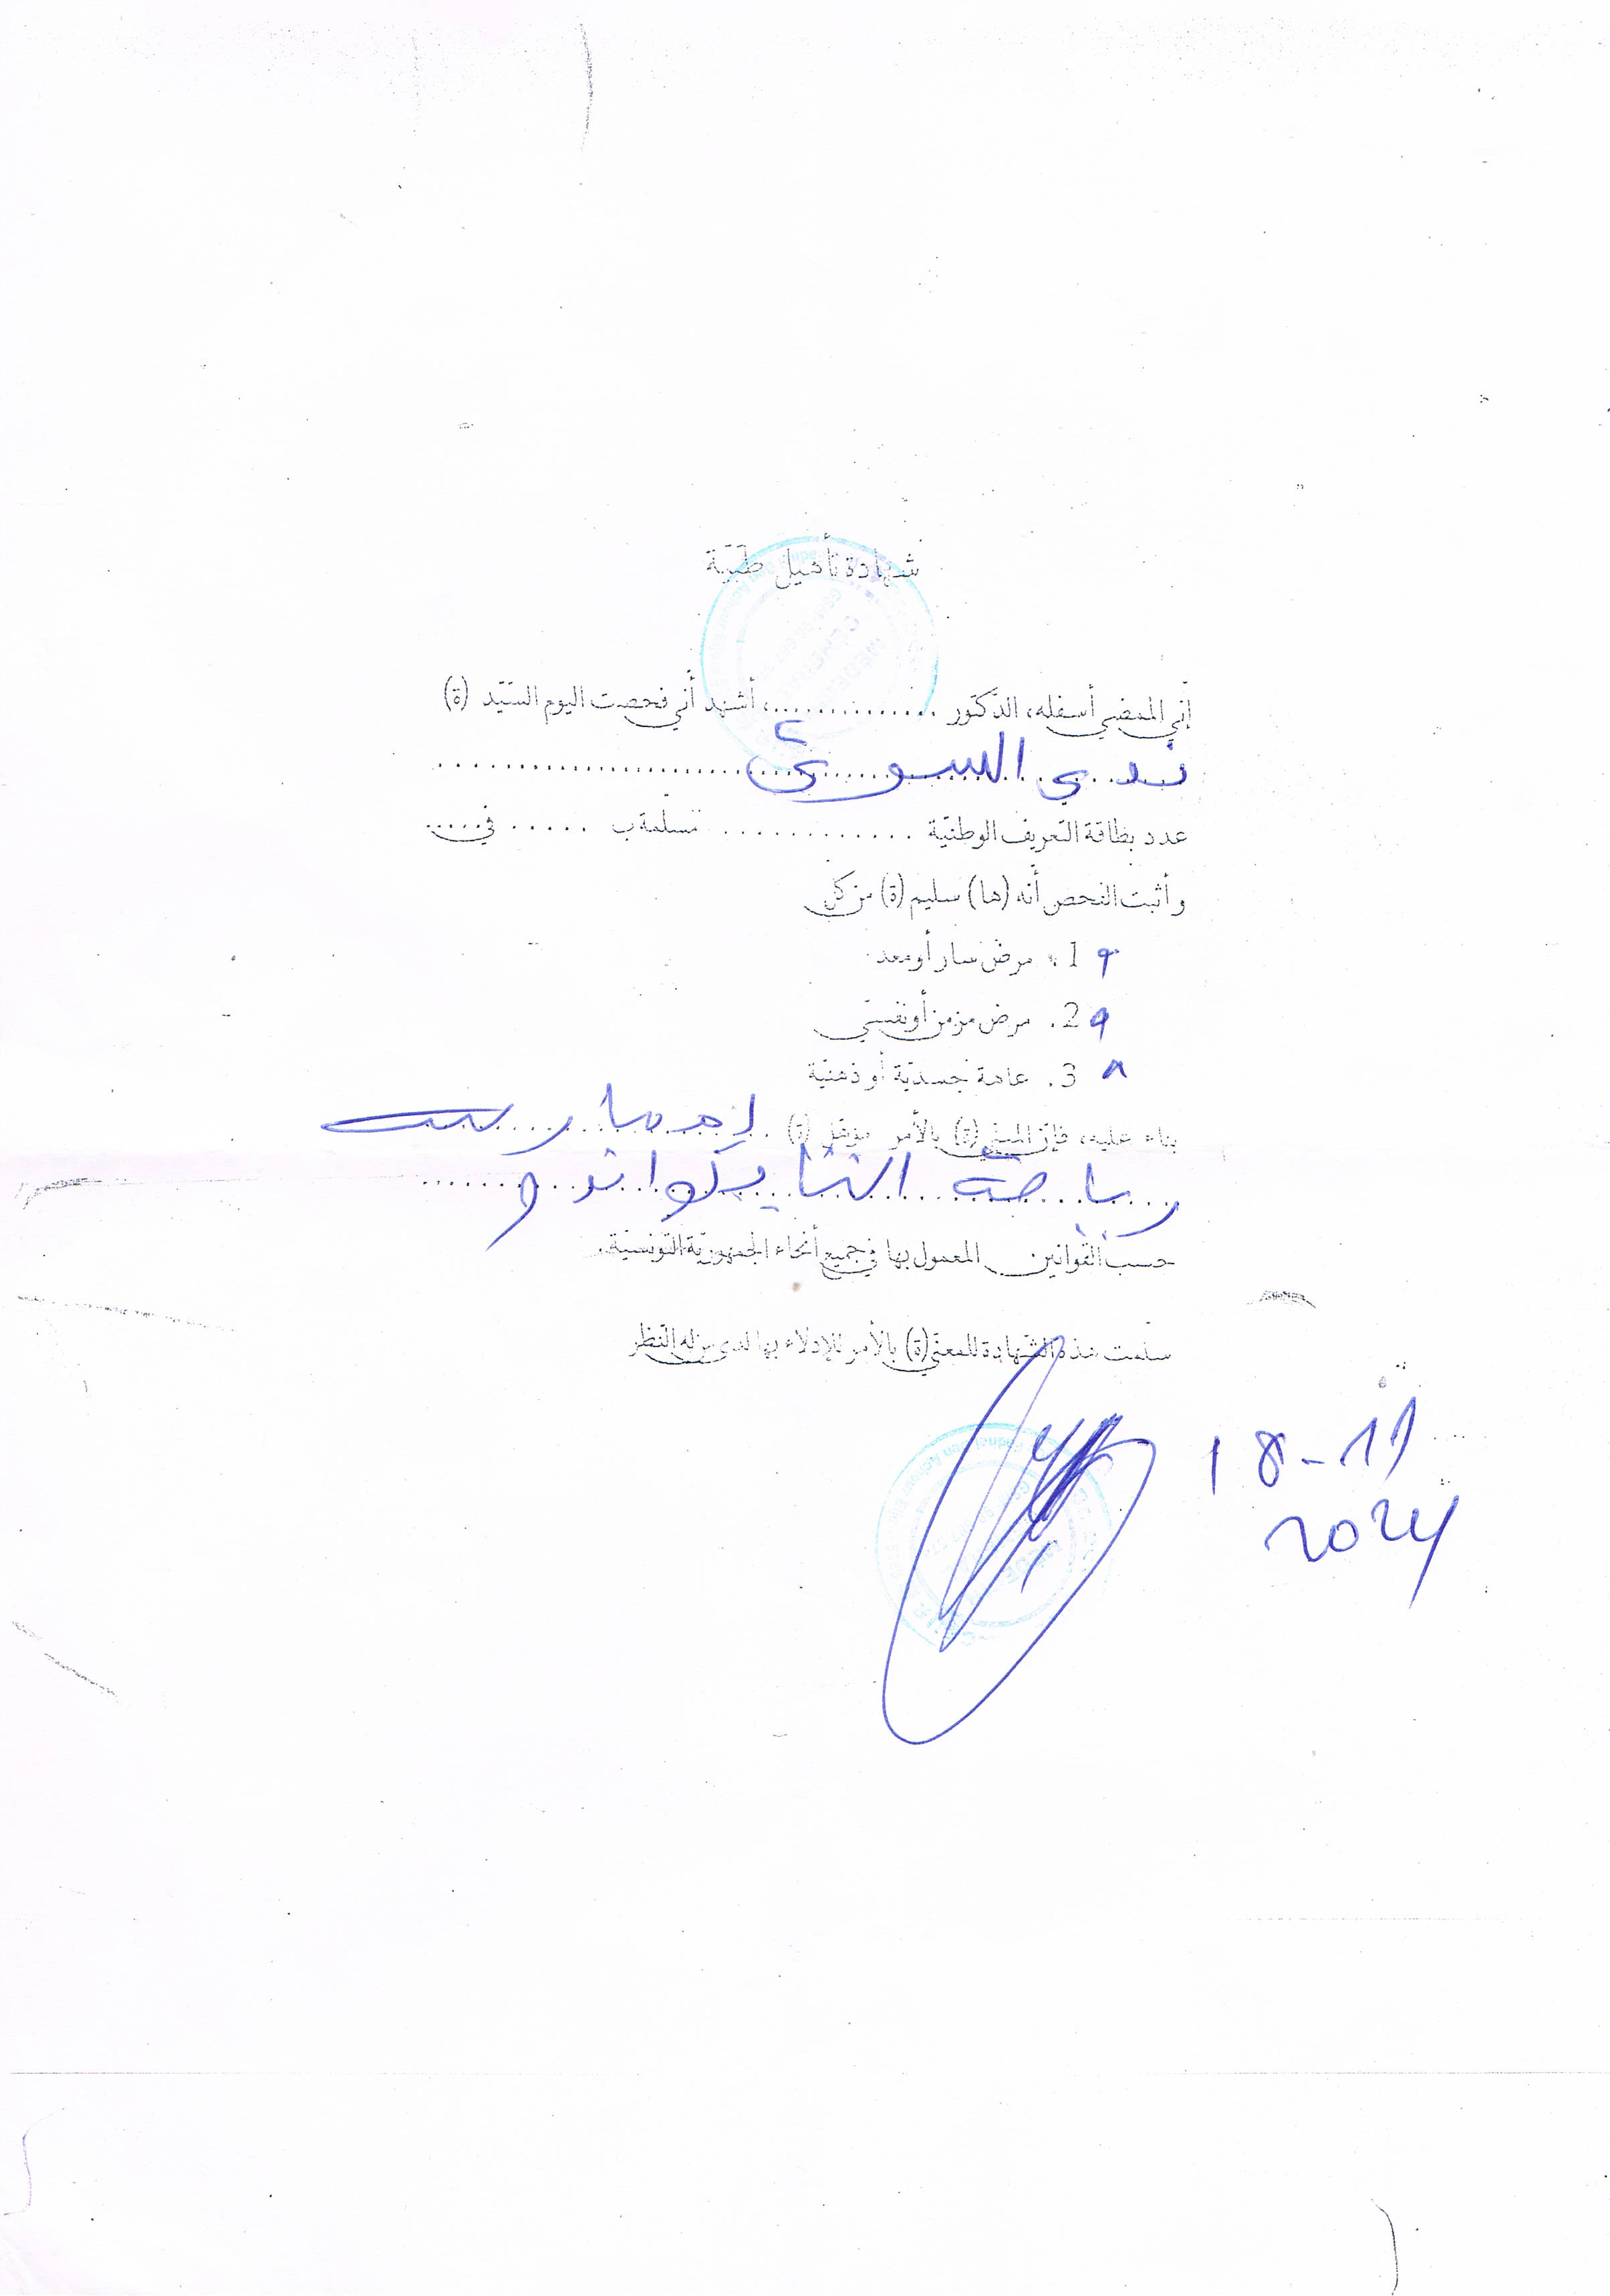 شهادة تأهيل طبّيّة
إنّي الممضي أسفله، الدّكتور ...............، أشهد أنّي فحصت اليوم السّيّد (ة)
ندى السبوعي
عدد بطاقة التعريف الوطنيّة ............. مسلّمة ب ..... في.....
وأثبت الفحص أنّه (ها) سليم (ة) من كلّ
1. مرض سار أو معد
2. مرض مزمن أو نفسيّ
3. عاهة جسديّة أو ذهنيّة
بناء عليه، فإنّ المعني (ة) بالأمر مؤهّل (ة) لممارسة
رياضة التايكواندو
حسب القوانين المعمول بها في جميع أنحاء الجمهوريّة التّونسيّة.
سلّمت هذه الشّهادة للمعني (ة) بالأمر للإدلاء بها لدى من له النّظر
18-11
2024